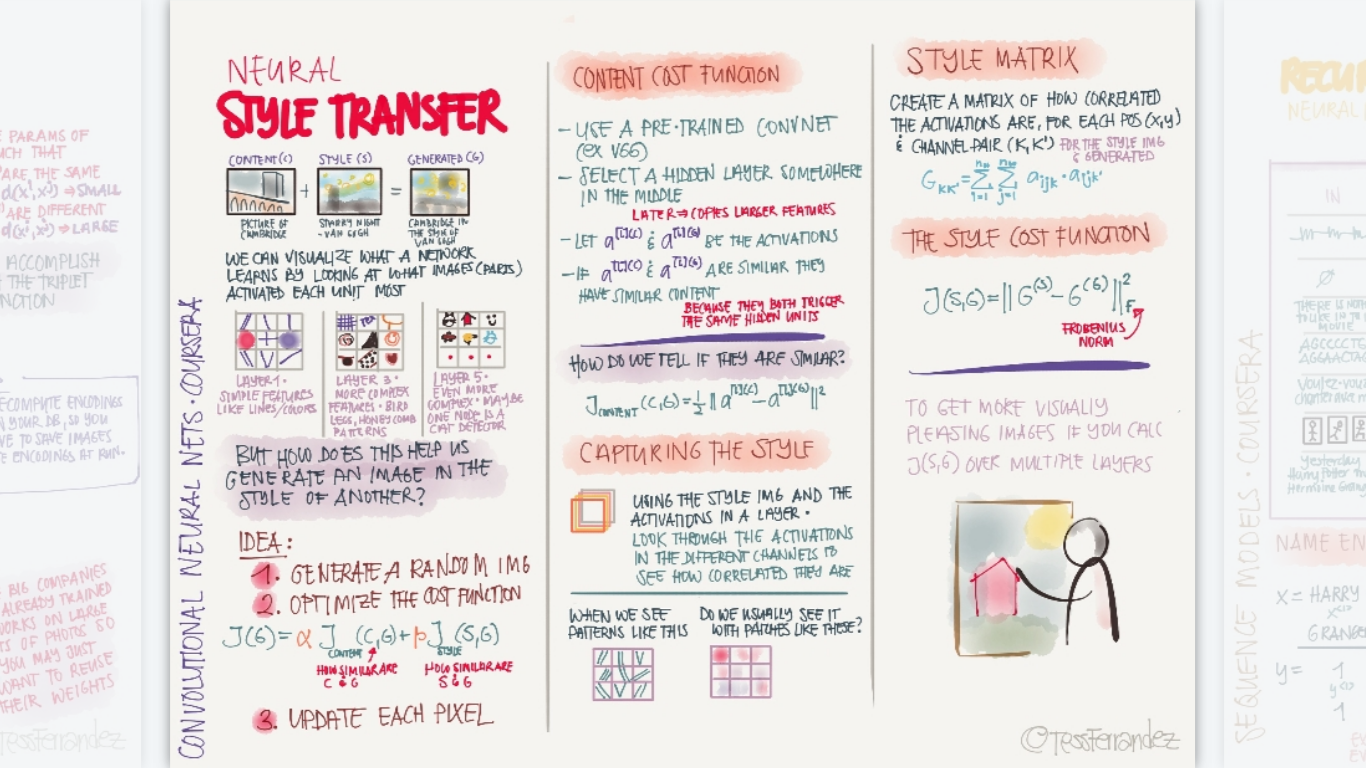 E PARAMS OF
UCH THAT
ARE THE SAME
d(x¹,x²) ⇒ SMALL
ARE DIFFERENT
d(x¹,x²) ⇒ LARGE
ACCOMPLISH
THE TRIPLET
NCTION
ECOMPUTE ENCODINGS
N YOUR DB, SO YOU
VE TO SAVE IMAGES
E ENCODINGS AT RUN.
BIG COMPANIES
ALREADY TRAINED
WORKS ON LARGE
TS OF PHOTOS SO
YOU MAY JUST
WANT TO REUSE
THEIR WEIGHTS
TessFerrandez
CONVOLUTIONAL NEURAL NETS · COURSERA
NEURAL
STYLE TRANSFER
CONTENT (C) STYLE (S) GENERATED (G)
+ =
PICTURE OF
CAMBRIDGE
STARRY NIGHT
- VAN GOGH
CAMBRIDGE IN
THE STYLE OF
VAN GOGH
WE CAN VISUALIZE WHAT A NETWORK
LEARNS BY LOOKING AT WHAT IMAGES (PARTS)
ACTIVATED EACH UNIT MOST
LAYER 1 ·
SIMPLE FEATURES
LIKE LINES/COLORS
LAYER 3 ·
MORE COMPLEX
FEATURES · BIRD
LEGS, HONEYCOMB
PATTERNS
LAYER 5 ·
EVEN MORE
COMPLEX · MAYBE
ONE NODE IS A
CAT DETECTOR
BUT HOW DOES THIS HELP US
GENERATE AN IMAGE IN THE
STYLE OF ANOTHER?
IDEA:
1. GENERATE A RANDOM IMG
2. OPTIMIZE THE COST FUNCTION
J(G) = α J_CONTENT (C,G) + β J_STYLE (S,G)
HOW SIMILAR ARE
C & G
HOW SIMILAR ARE
S & G
3. UPDATE EACH PIXEL
CONTENT COST FUNCTION
- USE A PRE-TRAINED CONVNET
(EX VGG)
- SELECT A HIDDEN LAYER SOMEWHERE
IN THE MIDDLE
LATER ⇒ COPIES LARGER FEATURES
- LET a^[L](C) & a^[L](G) BE THE ACTIVATIONS
- IF a^[L](C) & a^[L](G) ARE SIMILAR THEY
HAVE SIMILAR CONTENT
BECAUSE THEY BOTH TRIGGER
THE SAME HIDDEN UNITS
HOW DO WE TELL IF THEY ARE SIMILAR?
J_CONTENT (C,G) = ½ || a^[L](C) - a^[L](G) ||²
CAPTURING THE STYLE
USING THE STYLE IMG AND THE
ACTIVATIONS IN A LAYER ·
LOOK THROUGH THE ACTIVATIONS
IN THE DIFFERENT CHANNELS TO
SEE HOW CORRELATED THEY ARE
WHEN WE SEE
PATTERNS LIKE THIS
DO WE USUALLY SEE IT
WITH PATCHES LIKE THESE?
STYLE MATRIX
CREATE A MATRIX OF HOW CORRELATED
THE ACTIVATIONS ARE, FOR EACH POS (X,Y)
& CHANNEL-PAIR (K,K') FOR THE STYLE IMG
& GENERATED
G_KK' = Σ_{i=1}^{nH} Σ_{j=1}^{nW} a_ijk · a_ijk'
THE STYLE COST FUNCTION
J(S,G) = || G^(S) - G^(G) ||²_F
FROBENIUS
NORM
TO GET MORE VISUALLY
PLEASING IMAGES IF YOU CALC
J(S,G) OVER MULTIPLE LAYERS
©TessFerrandez
SEQUENCE MODELS · COURSERA
RECUR
NEURAL
IN
THERE IS NOT
TO LIKE IN TH
MOVIE
AGCCCCTG
AGGAACTA
Voulez-vou
chanter avec m
Yesterday
Harry Potter m
Hermione Gran
NAME EN
X = HARRY
X<1>
GRANGE
y = 1
y<1>
1